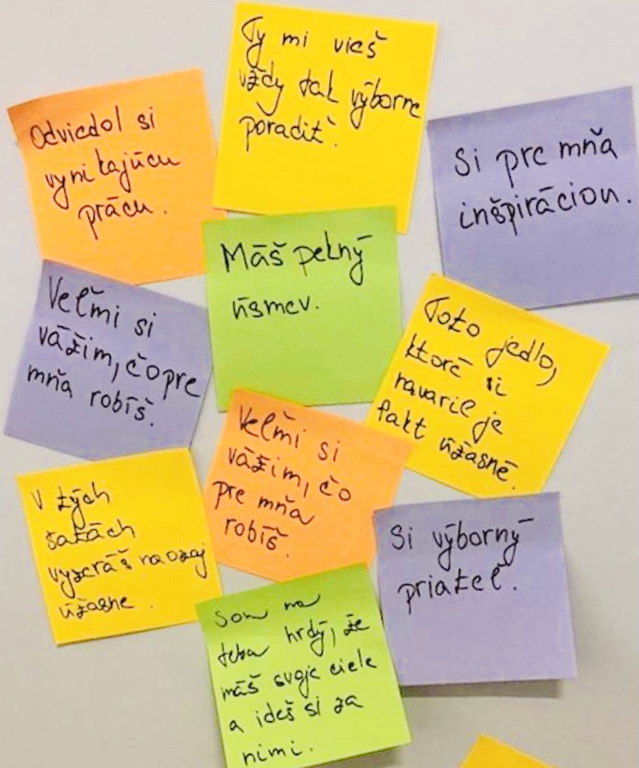 Ty mi vieš
vždy tak výborne
poradiť.
Odviedol si
vynikajúcu
prácu.
Si pre mňa
inšpiráciou.
Máš pekný
úsmev.
Veľmi si
vážim, čo pre
mňa robíš.
Toto jedlo,
ktoré si
navaril je
fakt úžasné.
Veľmi si
vážim, čo
pre mňa
robíš.
V tých
šatách
vyzeráš naozaj
úžasne.
Si výborný
priateľ.
Som na
teba hrdý, že
máš svoje ciele
a ideš si za
nimi.